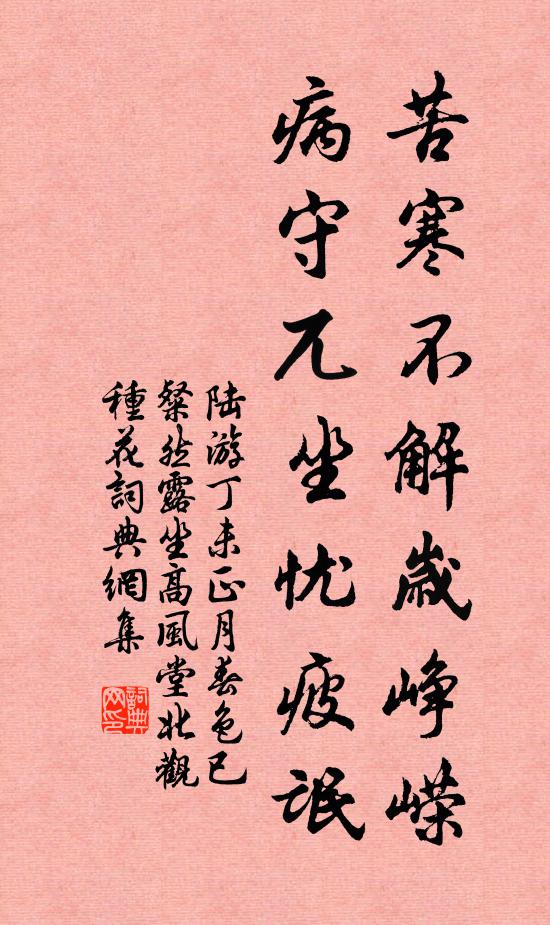 苦寒不解歲崢嶸
病守兀坐忧疲氓
陆游丁未正月春色已
粲然露坐高風堂北觀
種花詞典網集
詞典网印